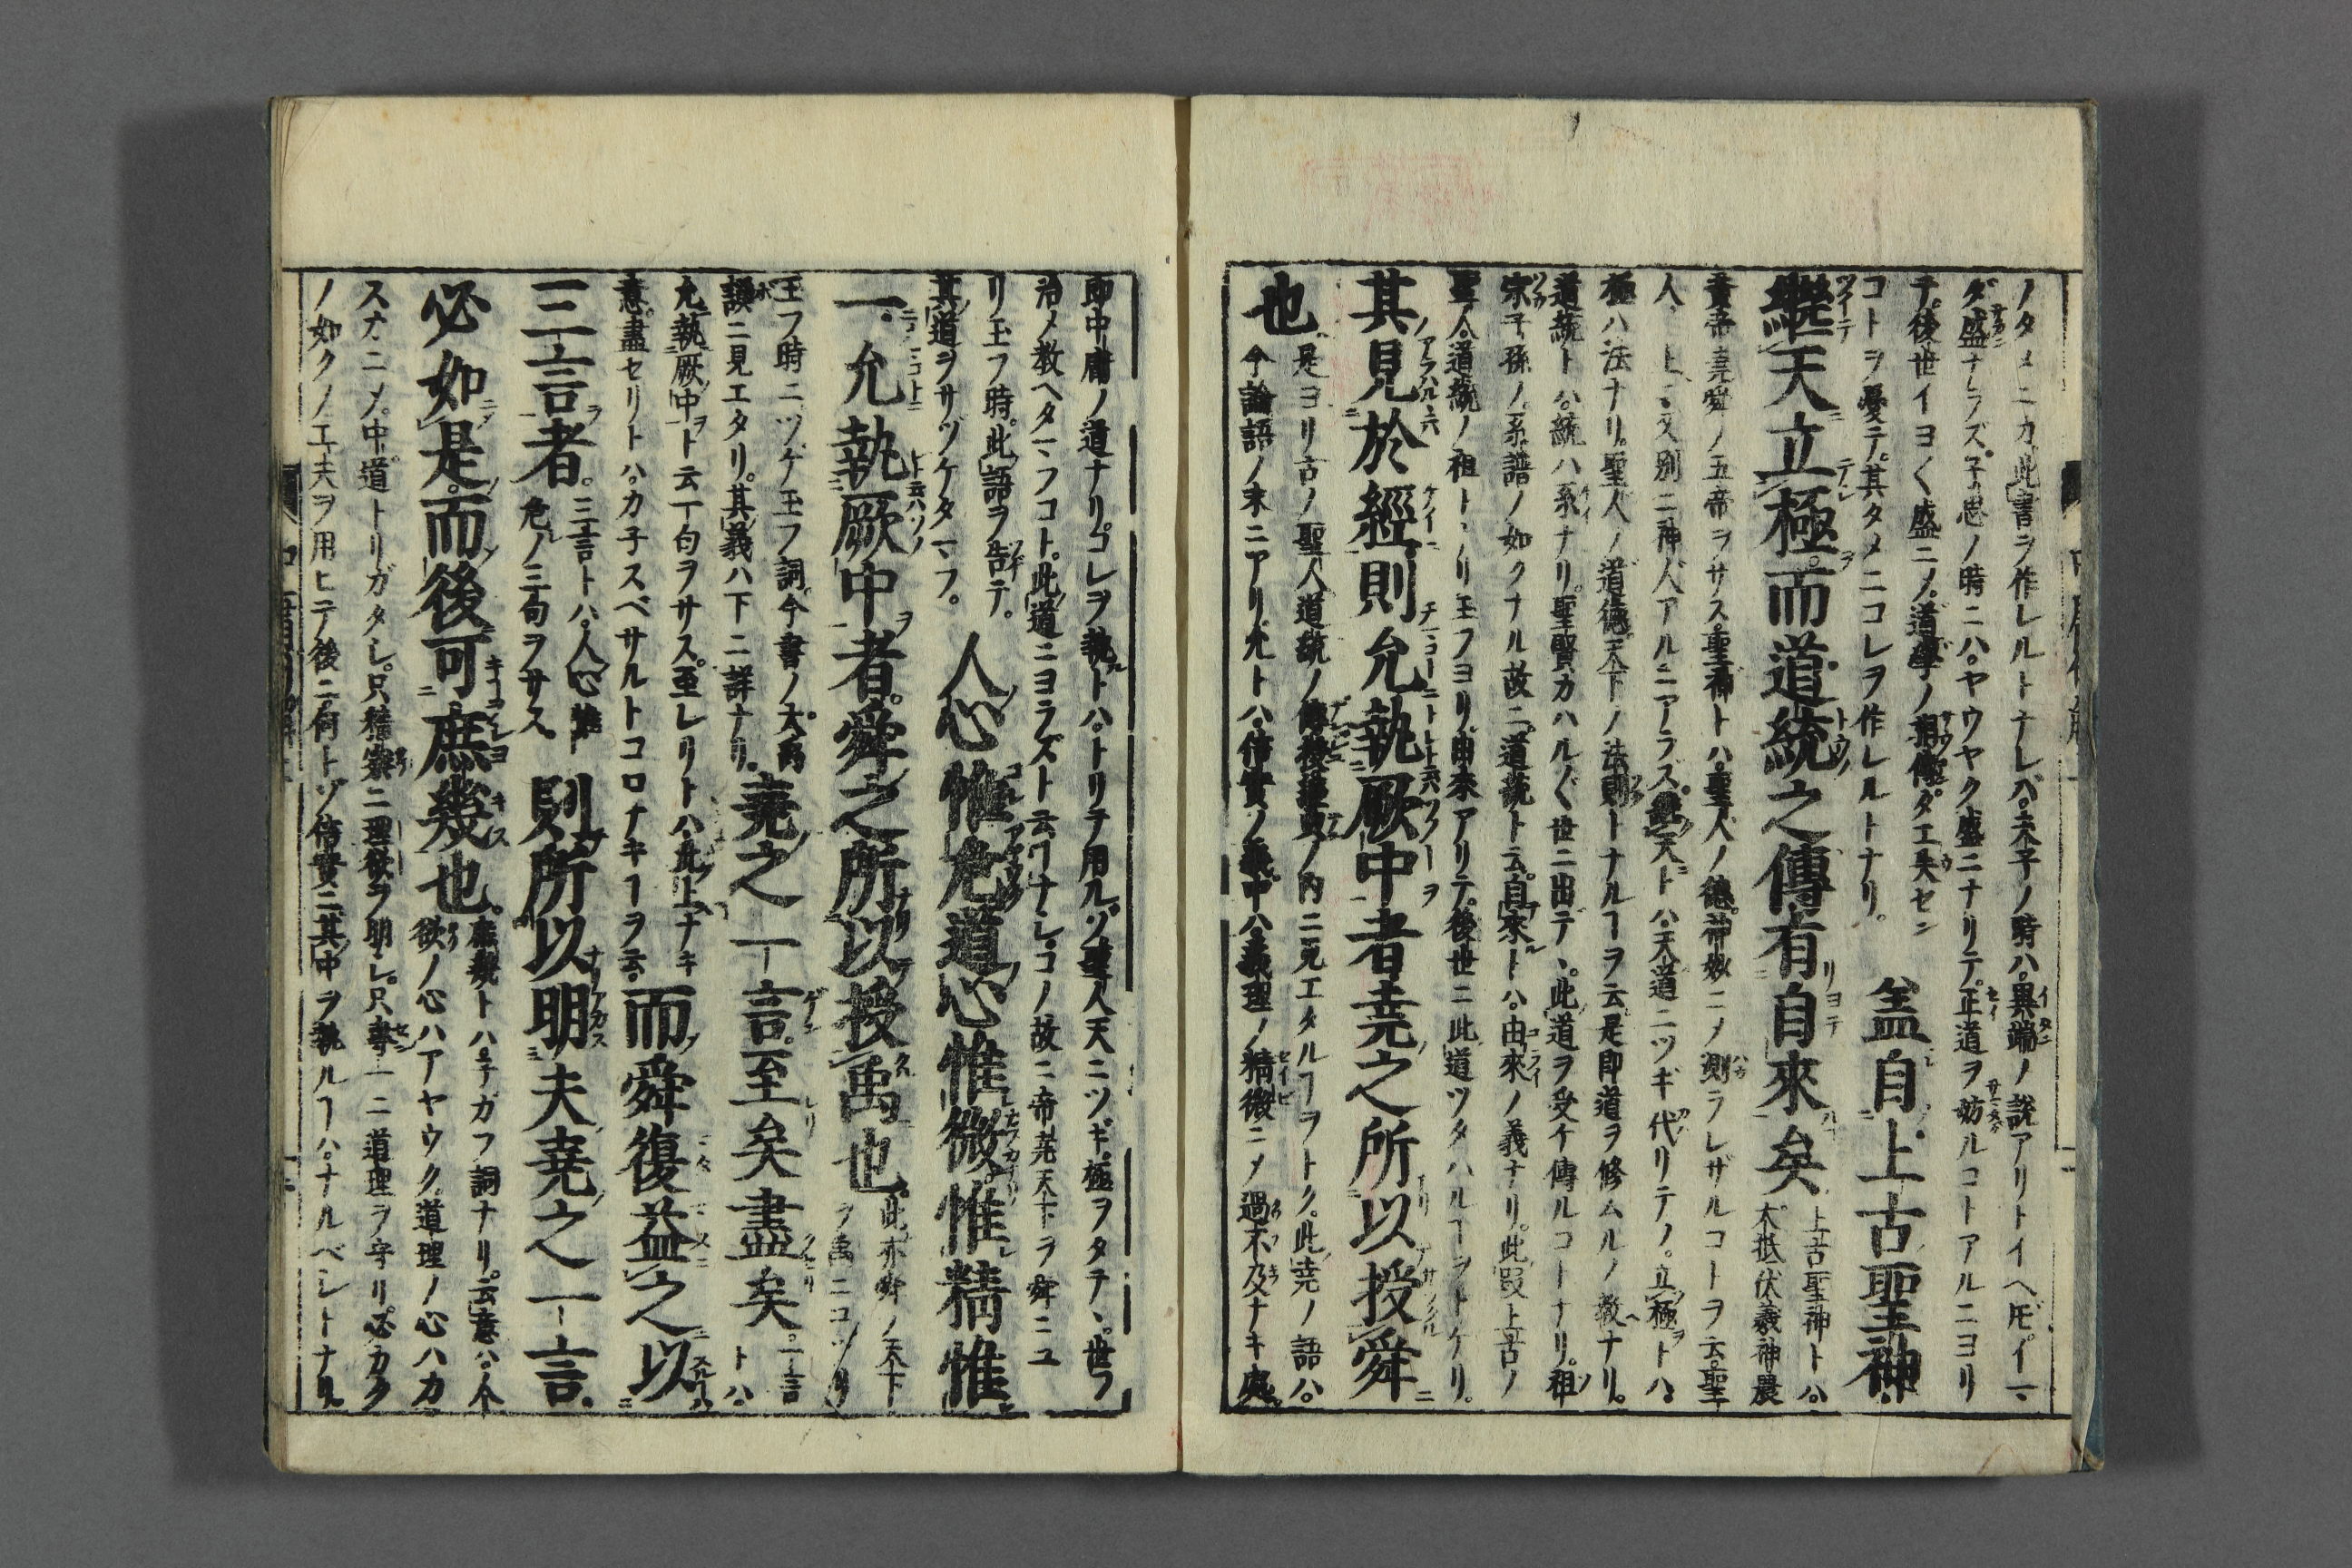 ノタメニカ此書ヲ作レルトナレバ朱子ノ時ハ異端ノ說アリトイヘ𪜈イマ
ダ盛ナラズ子思ノ時ニハヤウヤク盛ニナリテ正道ヲ妨ルコトアルニヨリ
テ後世イヨ〱盛ニメ道學ノ相傳タエ失セン
コトヲ憂テ其タメニコレヲ作レルトナリ。蓋自上古聖神
繼天立極而道統之傳有自來矣
上古聖神トハ
大抵伏羲神農
黄帝堯舜ノ五帝ヲサス聖神トハ聖人ノ德神妙ニメ測ラレザルコトヲ云聖
人ノ上ニ又別ニ神人アルニアラズ繼天トハ天道ニツギ代リテノ立極ヲトハ
極ハ法ナリ聖人ノ道德天下ノ法則トナルヿヲ云是即道ヲ修ムルノ敎ナリ。
道統トハ統ハ系ナリ聖賢カハル〲世ニ出デヽ此道ヲ受ケ傳ルコトナリ。祖
宗子孫ノ系譜ノ如クナル故ニ道統ト云自來トハ由來ノ義ナリ此段上古ノ
聖人道統ノ祖トナリ玉フヨリ由來アリテ後世ニ此道ツタハルヿヲトケリ。
其見於經則允執厥中者堯之所以授舜
也
是ヨリ古ノ聖人道統ノ傳授經典ノ内ニ見エタルヿヲトク此堯ノ語ハ
今論語ノ末ニアリ允トハ信實ノ義中ハ義理ノ精微ニメ過不及ナキ處
即中庸ノ道ナリコレヲ執トハトリテ用ルゾ聖人天ニツギ極ヲタテヽ世ヲ
治メ敎ヘタマフコト此道ニヨラズト云ヿナシコノ故ニ帝堯天下ヲ舜ニユ
リ玉フ時此語ヲ告テ
其道ヲサヅケタマフ。人心惟危道心惟微惟精惟
一允執厥中者舜之所以授禹也
此亦舜ノ天下
ヲ禹ニユヅリ
玉フ時ニツゲ玉フ詞今書ノ大禹
謨ニ見エタリ其義ハ下ニ詳ナリ。堯之一言至矣盡矣
一言トハ
允執厥中ト云一句ヲサス至レリトハ此上ナキ
意盡セリトハカ子スベサルトコロナキヿヲ云。而舜復益之以
三言者
三言トハ人心惟
危ノ三句ヲサス
則所以明夫堯之一言
必如是而後可庶幾也
庶幾トハ子ガフ詞ナリ云意ハ人
欲ノ心ハアヤウク道理ノ心ハカ
スカニメ中道トリガタシ只精察ニ理欲ヲ明シ只專一ニ道理ヲ守リ必カク
ノ如クノ工夫ヲ用ヒテ後ニ何トゾ信實ニ其中ヲ執ルヿハナルベシトナリ